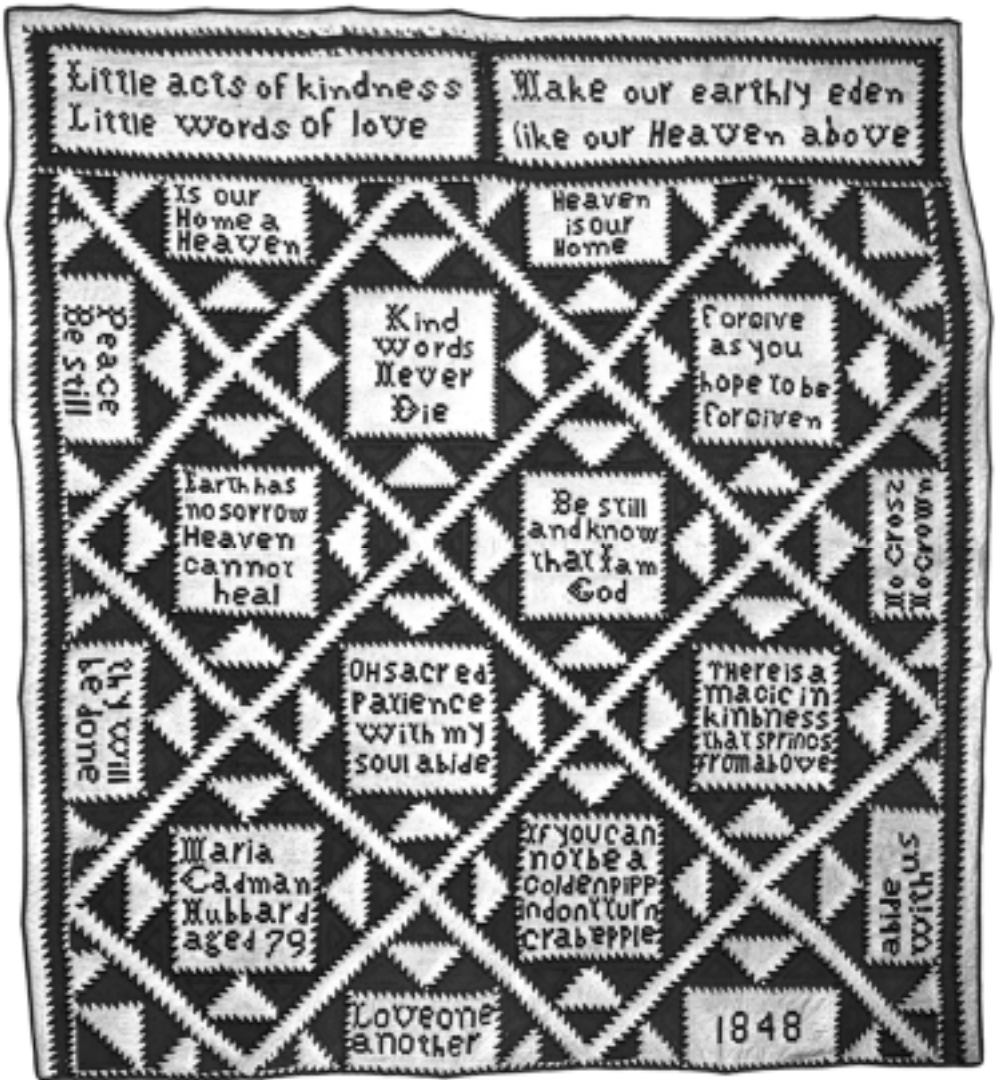 Little acts of kindness
Little words of love
Make our earthly eden
like our Heaven above
Is our
Home a
Heaven
Heaven
is our
Home
Peace
Be still
Kind
words
Never
Die
Forgive
as you
hope to be
Forgiven
Earth has
no sorrow
Heaven
cannot
heal
Be still
and know
that I am
God
No Cross
No Crown
thy will
be done
OH sacred
Patience
with my
soul abide
THere is a
magic in
kinbness
that springs
from above
Maria
Cadman
Hubbard
aged 79
If you can
not be a
Golden pipp
in dont turn
crab epple
abide
with us
Love one
another
1848